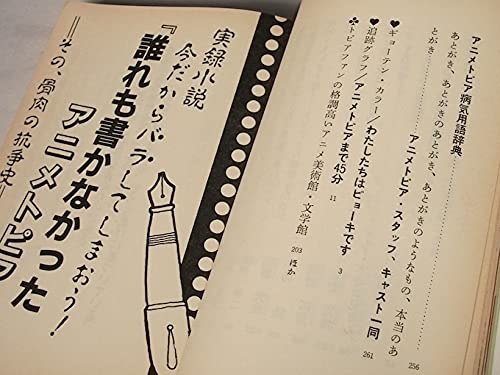 アニメトピア病気用語辞典
あとがき、あとがきのあとがき、あとがきのようなもの、本当のあ
とがき……アニメトピア・スタッフ、キャスト一同
256
261
♥ギョーテン・カラー／わたしたちはビョーキです
3
♥追跡グラフ／アニメトピアまで45分
11
♣トピアファンの格調高いアニメ美術館・文学館
203 ほか
実録小説
今だからバラしてしまおう!
『誰れも書かなかった
アニメトピア
―その、骨肉の抗争史―